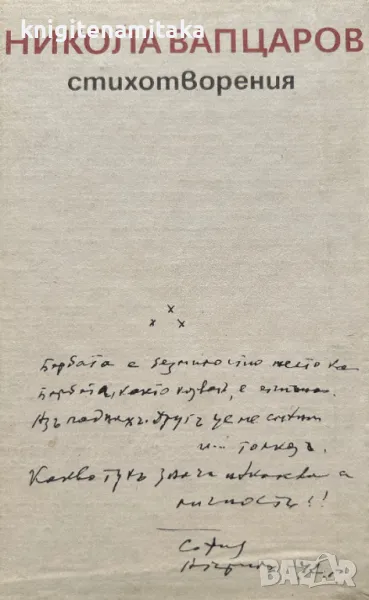 knigitenamitaka
НИКОЛА ВАПЦАРОВ
стихотворения
x
x x
Борбата е безмилостно жестока
Борбата, както казват, е епична.
Азъ паднахъ. Другъ ще ме смѣни
и... толкозъ.
Какво тукъ значи някаква
личность!!
София
bazar.bg